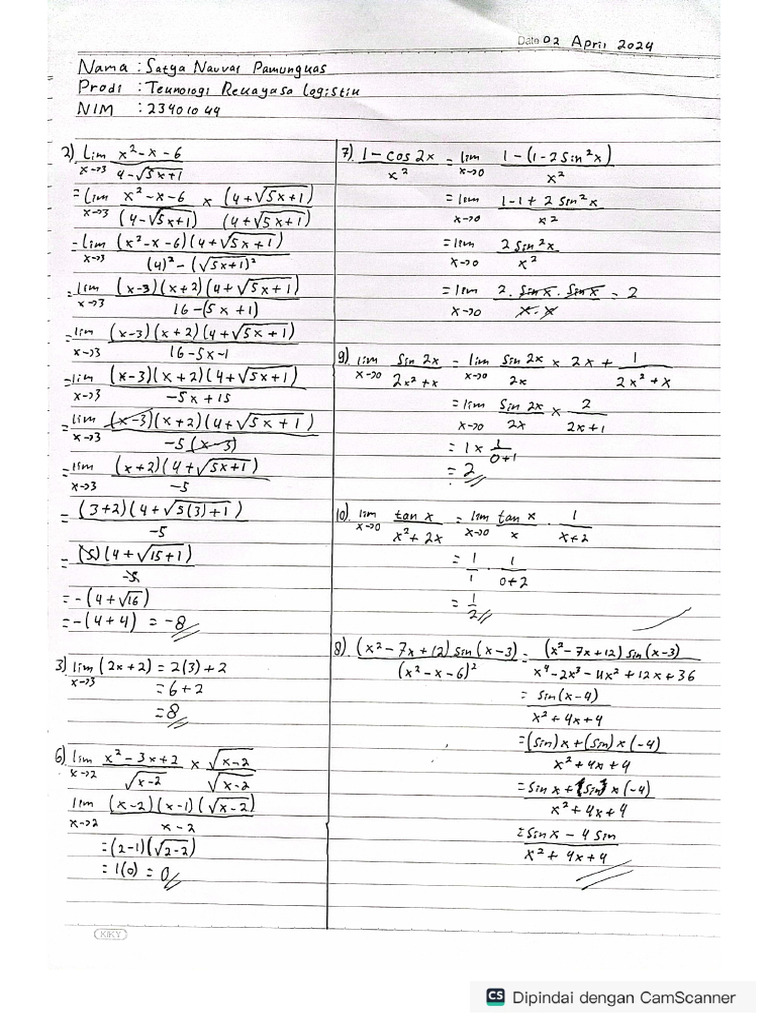 Date 02 April 2024
Nama : Satya Nauval Pamungkas
Prodi : Teknologi Rekayasa Logistik
NIM : 23401044
2) lim x→3 (x² - x - 6)/(4 - √5x+1)
= lim x→3 (x² - x - 6)/(4 - √5x+1) × (4 + √5x+1)/(4 + √5x+1)
= lim x→3 (x² - x - 6)(4 + √5x+1)/((4)² - (√5x+1)²)
= lim x→3 (x-3)(x+2)(4 + √5x+1)/(16 - (5x+1))
= lim x→3 (x-3)(x+2)(4 + √5x+1)/(16 - 5x - 1)
= lim x→3 (x-3)(x+2)(4 + √5x+1)/(-5x + 15)
= lim x→3 (x-3)(x+2)(4 + √5x+1)/(-5(x-3))
= lim x→3 (x+2)(4 + √5x+1)/(-5)
= (3+2)(4 + √5(3)+1)/(-5)
= (5)(4 + √15+1)/(-5)
= -(4 + √16)
= -(4 + 4) = -8
3) lim x→3 (2x + 2) = 2(3) + 2
= 6 + 2
= 8
6) lim x→2 (x² - 3x + 2)/√x-2 × √x-2/√x-2
lim x→2 (x-2)(x-1)(√x-2)/(x-2)
= (2-1)(√2-2)
= 1(0) = 0
7) (1 - cos 2x)/x² = lim x→0 (1 - (1 - 2 sin²x))/x²
= lim x→0 (1 - 1 + 2 sin²x)/x²
= lim x→0 2 sin²x/x²
= lim x→0 (2 . sin x . sin x)/(x . x) = 2
9) lim x→0 sin 2x/(2x² + x) = lim x→0 sin 2x/2x × 2x + 1/(2x² + x)
= lim x→0 sin 2x/2x × 2/(2x+1)
= 1 × 1/(0+1)
= 2
10) lim x→0 tan x/(x² + 2x) = lim x→0 tan x/x . 1/(x+2)
= 1/1 . 1/(0+2)
= 1/2
8) (x² - 7x + 12) sin (x-3)/(x² - x - 6)² = (x² - 7x + 12) sin (x-3)/(x⁴ - 2x³ - 11x² + 12x + 36)
= sin (x-4)/(x² + 4x + 4)
= (sin) x + (sin) × (-4)/(x² + 4x + 4)
= sin x + (sin) × (-4)/(x² + 4x + 4)
= sin x - 4 sin/(x² + 4x + 4)
KIKY
CS Dipindai dengan CamScanner